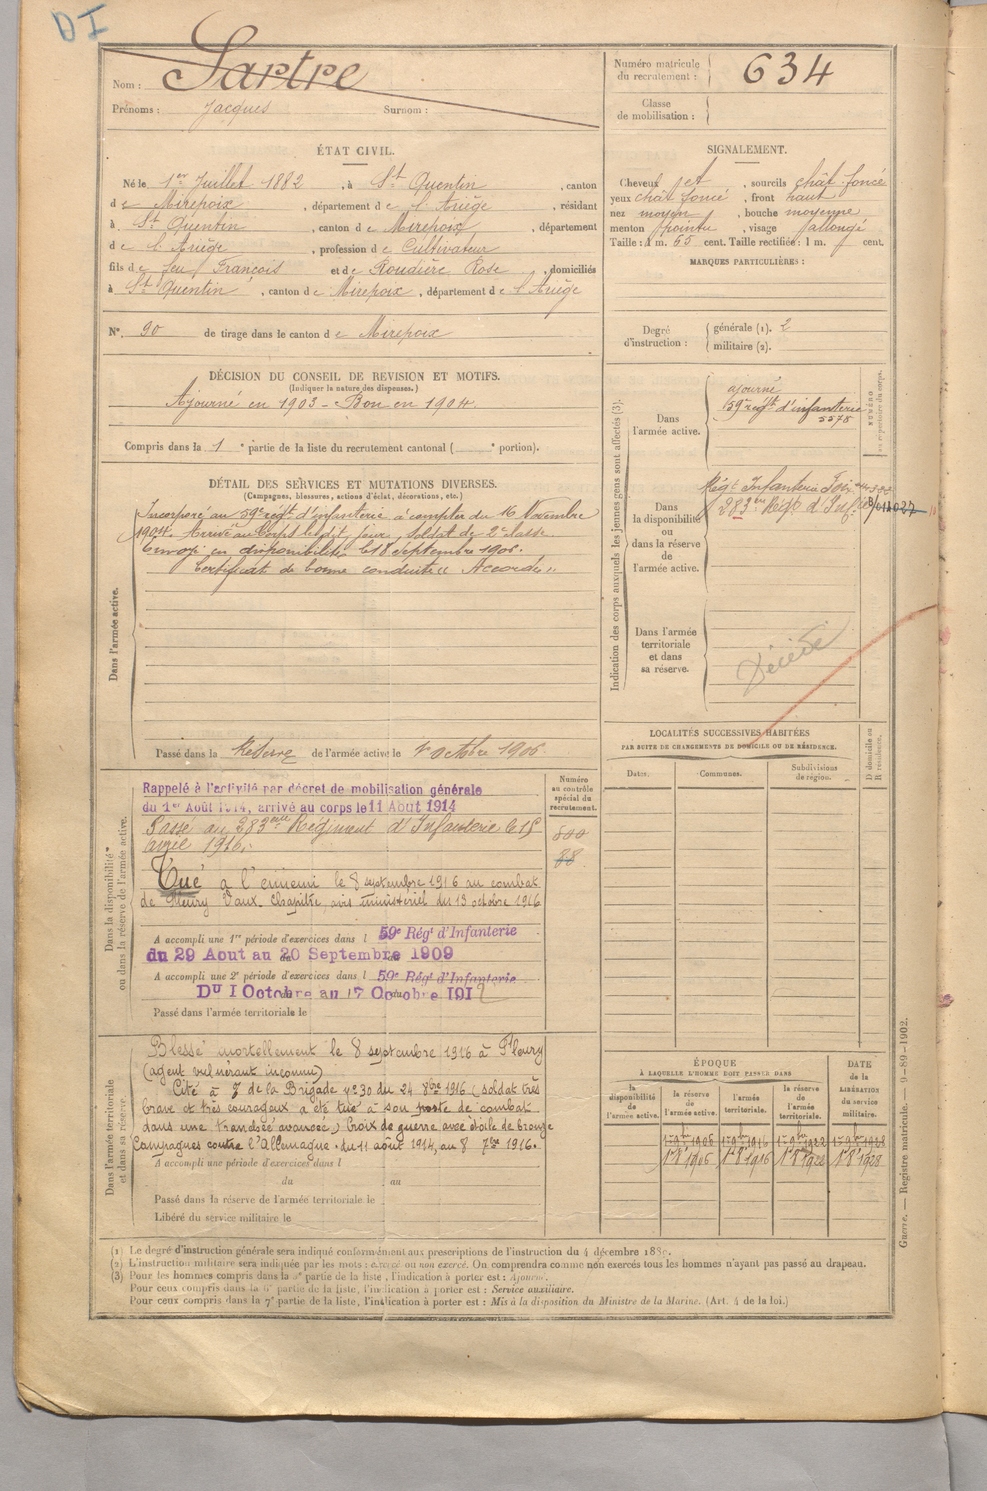 DI
Nom : Sartre
Prénoms : Jacques Surnom :
Numéro matricule du recrutement : 634
Classe de mobilisation :
ÉTAT CIVIL.
Né le 1er Juillet 1882, à St Quentin, canton
de Mirepoix, département de l'Ariège, résidant
à St Quentin, canton de Mirepoix, département
de l'Ariège, profession de Cultivateur
fils de feu François et de Roudière Rose, domiciliés
à St Quentin, canton de Mirepoix, département de l'Ariège
N° 90 de tirage dans le canton de Mirepoix
SIGNALEMENT.
Cheveux , sourcils chât foncé
yeux chât foncé, front haut
nez moyen, bouche moyenne
menton pointu, visage allongé
Taille : 1 m. 65 cent. Taille rectifiée : 1 m. cent.
MARQUES PARTICULIÈRES :
Degré d'instruction : générale (1). 2
militaire (2).
DÉCISION DU CONSEIL DE REVISION ET MOTIFS.
(Indiquer la nature des dispenses.)
Ajourné en 1903 - Bon en 1904.
Compris dans la 1e partie de la liste du recrutement cantonal ( e portion).
DÉTAIL DES SERVICES ET MUTATIONS DIVERSES.
(Campagnes, blessures, actions d'éclat, décorations, etc.)
Dans l'armée active.
Incorporé au 59e régt d'infanterie à compter du 16 Novembre
1904. Arrivé au Corps le dit jour, soldat de 2e classe.
Envoyé en disponibilité le 18 septembre 1906.
Certificat de bonne conduite "Accordé"
Passé dans la Réserve de l'armée active le 1er octobre 1906
Indication des corps auxquels les jeunes gens sont affectés (3).
NUMÉRO au répertoire du corps.
Dans l'armée active.
ajourné
59e régt d'infanterie
5578
Dans la disponibilité ou dans la réserve de l'armée active.
Régt Infanterie Foix
283e Régt d'Inf
Dans l'armée territoriale et dans sa réserve.
Décédé
LOCALITÉS SUCCESSIVES HABITÉES
PAR SUITE DE CHANGEMENTS DE DOMICILE OU DE RÉSIDENCE.
Dates. Communes. Subdivisions de région. D domicile ou R résidence.
Dans la disponibilité ou dans la réserve de l'armée active.
Numéro au contrôle spécial du recrutement.
Rappelé à l'activité par décret de mobilisation générale
du 1er Août 1914, arrivé au corps le 11 Août 1914
Passé au 283eme Régiment d'Infanterie le 15
avril 1916.
Tué à l'ennemi le 8 septembre 1916 au combat
de Fleury Vaux-Chapitre, avis ministériel du 13 octobre 1916
A accompli une 1re période d'exercices dans l 59e Régt d'Infanterie
du 29 Aout au 20 Septembre 1909
A accompli une 2e période d'exercices dans l 59e Régt d'Infanterie
Du 1 Octobre au 17 Octobre 1912
Passé dans l'armée territoriale le
Dans l'armée territoriale et dans sa réserve.
Blessé mortellement le 8 septembre 1916 à Fleury
(agent vulnérant inconnu)
Cité à l' de la Brigade n° 30 du 24 8bre 1916 (soldat très
brave et très courageux a été tué à son poste de combat
dans une tranchée avancée) Croix de guerre avec étoile de bronze
Campagnes contre l'Allemagne - du 11 août 1914, au 8 7bre 1916.
A accompli une période d'exercices dans l
du au
Passé dans la réserve de l'armée territoriale le
Libéré du service militaire le
ÉPOQUE
À LAQUELLE L'HOMME DOIT PASSER DANS
la disponibilité de l'armée active. la réserve de l'armée active. l'armée territoriale. la réserve de l'armée territoriale. DATE de la LIBÉRATION du service militaire.
1er 9bre 1906 1er 9bre 1916 1er 9bre 1922 1er 9bre 1928
1er 8bre 1906 1er 8bre 1916 1er 8bre 1922 1er 8bre 1928
(1) Le degré d'instruction générale sera indiqué conformément aux prescriptions de l'instruction du 4 décembre 1889.
(2) L'instruction militaire sera indiquée par les mots : exercé ou non exercé. On comprendra comme non exercés tous les hommes n'ayant pas passé au drapeau.
(3) Pour les hommes compris dans la 5e partie de la liste, l'indication à porter est : Ajourné.
Pour ceux compris dans la 6e partie de la liste, l'indication à porter est : Service auxiliaire.
Pour ceux compris dans la 7e partie de la liste, l'indication à porter est : Mis à la disposition du Ministre de la Marine. (Art. 4 de la loi.)
Guerre. — Registre matricule. — 9-89-1902.